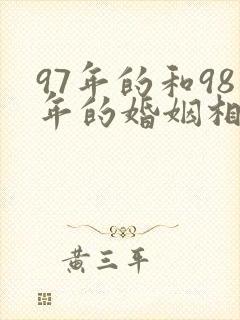 97年的和98
年的婚姻相
黄三平